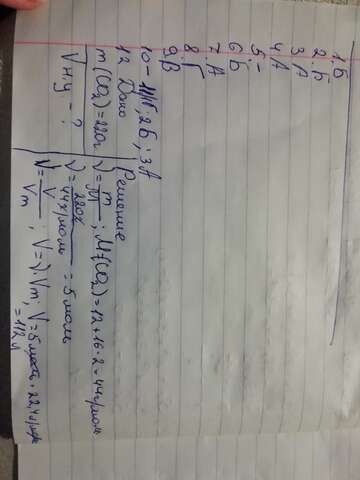 1. Б
2. Б
3. А
4 А
5. -
6 Б
7. А
8. Г
9. В
10 - 2Б; 3А
12 Дано
m(CO₂) = 220г
V н.у - ?
Решение
ν = m/M; M(CO₂) = 12 + 16 · 2 = 44г/моль
ν = 220г/44г/моль = 5 моль
ν = V/Vm; V = ν · Vm; V = 5 моль · 22,4 л/моль
= 112 л